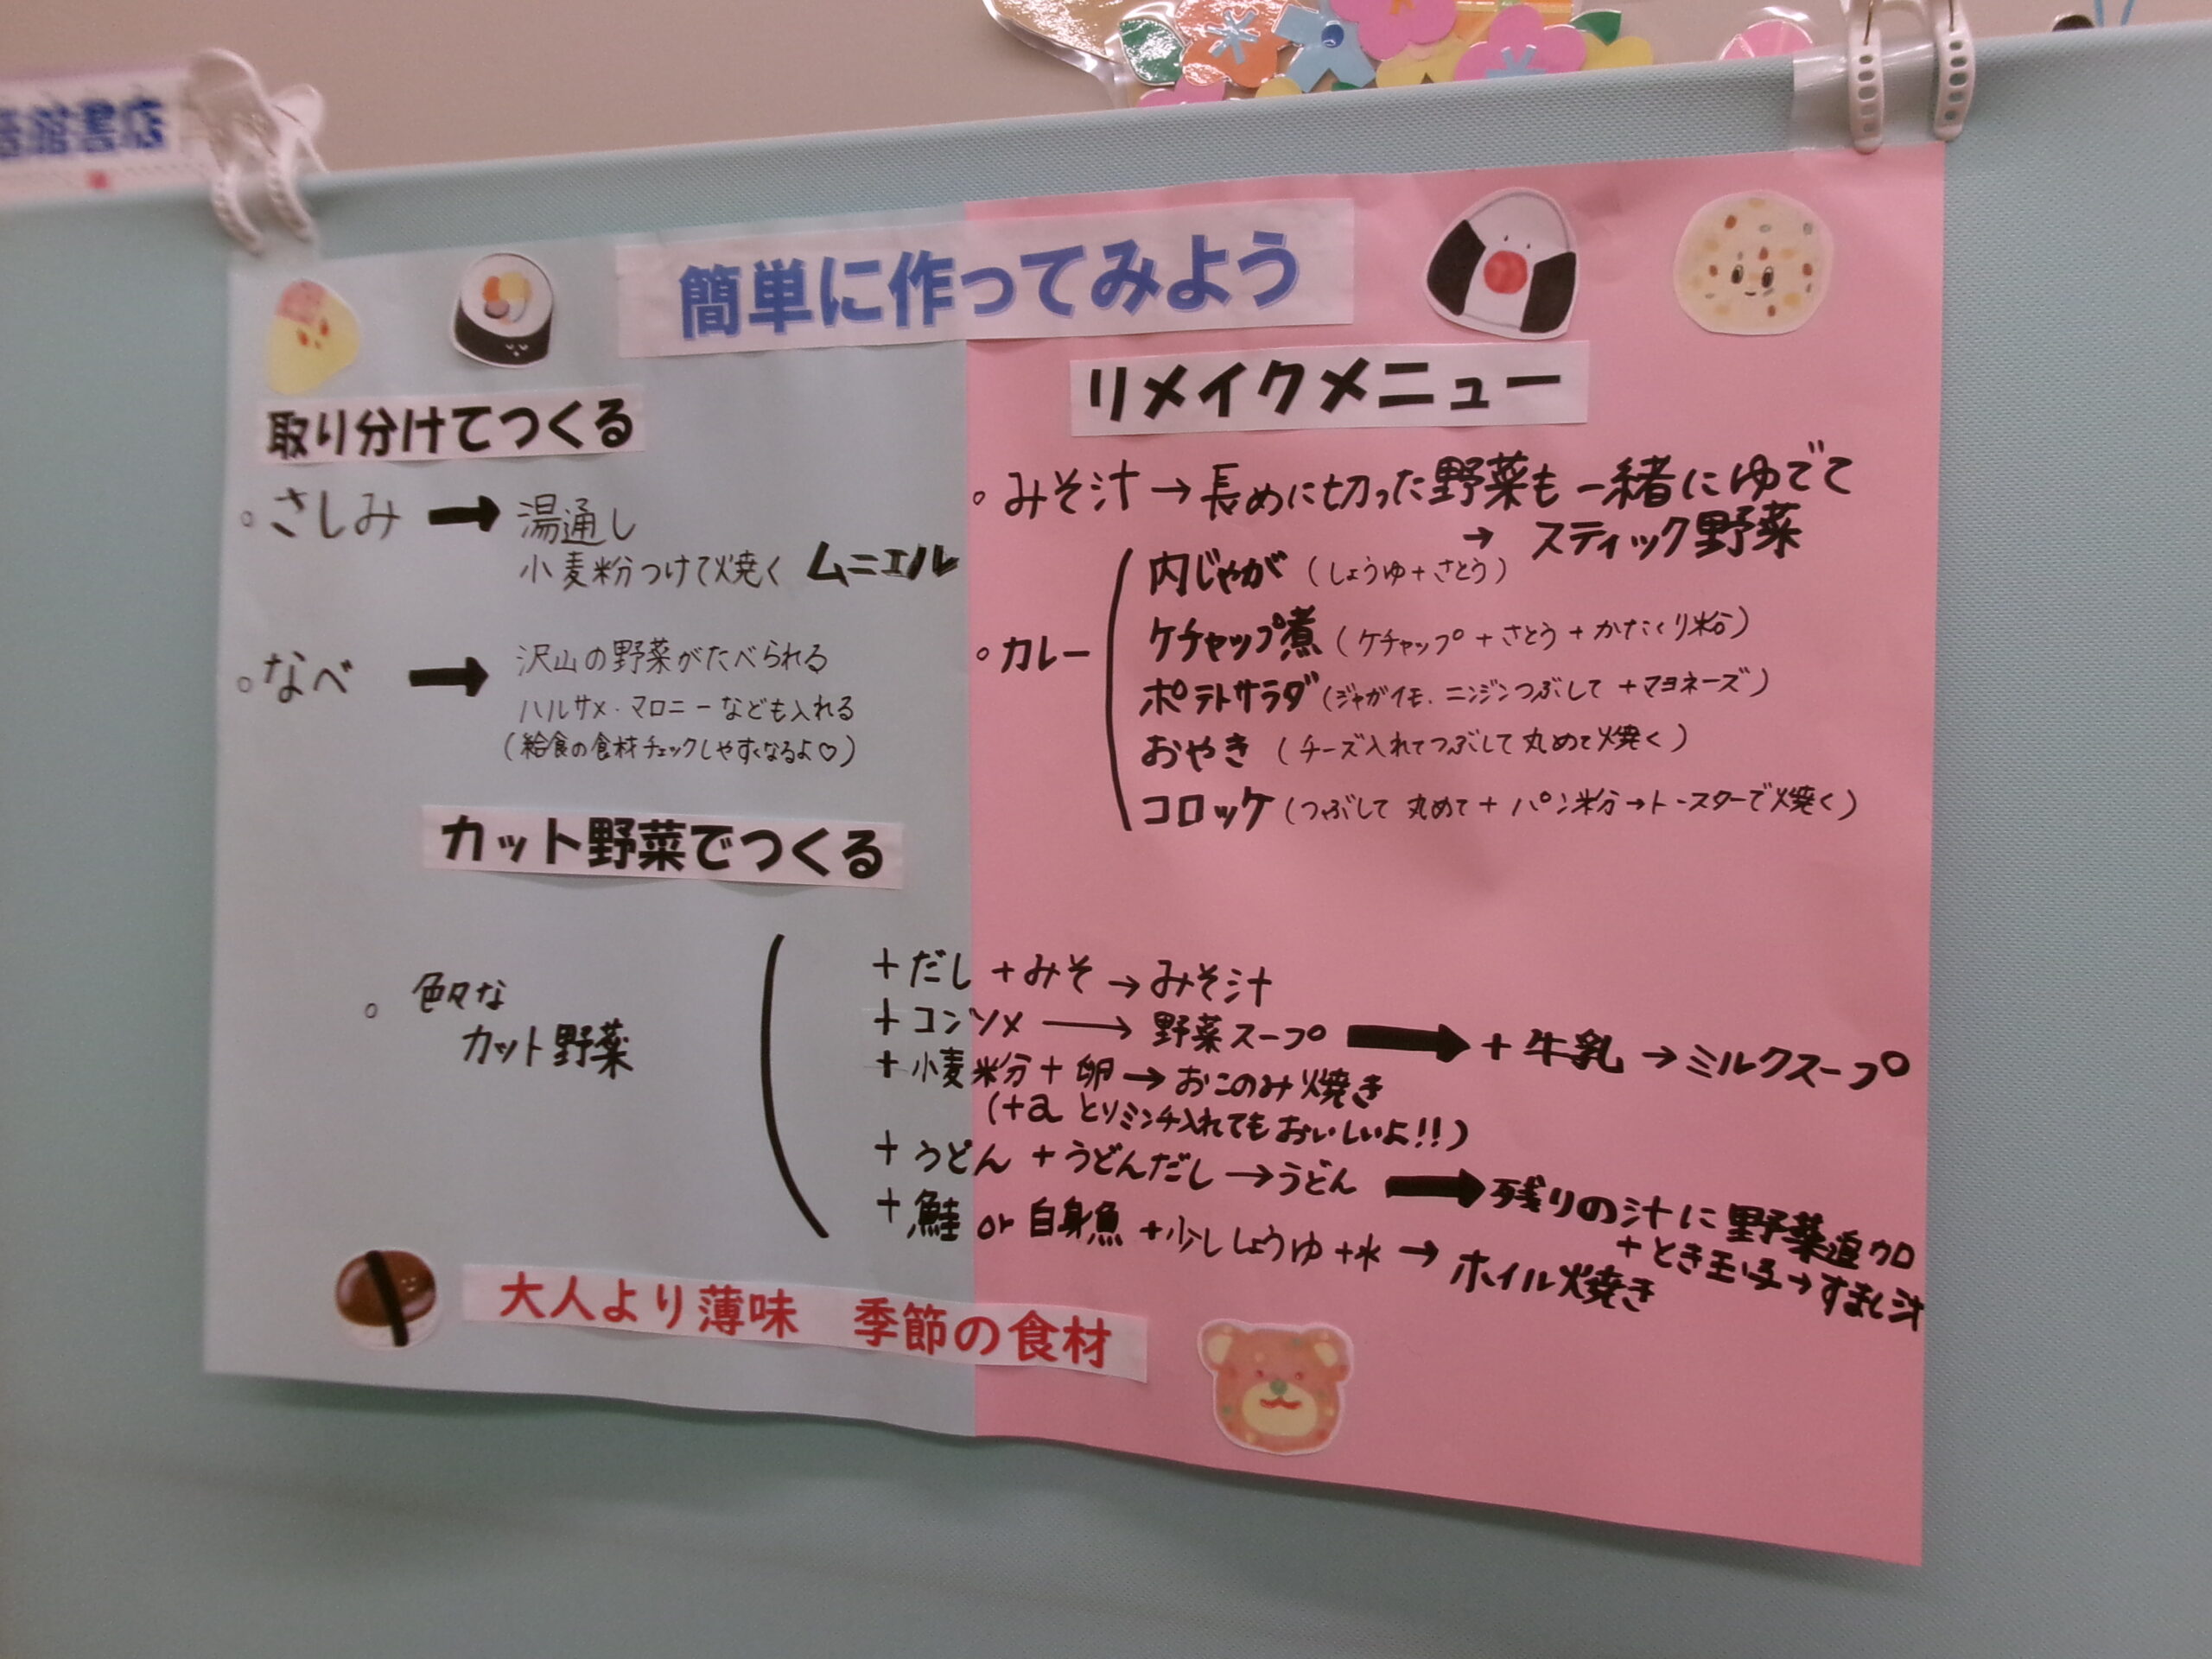 館書店
簡単に作ってみよう
取り分けてつくる
。さしみ → 湯通し
小麦粉つけて焼く ムニエル
。なべ → 沢山の野菜がたべられる
ハルサメ・マロニーなども入れる
(給食の食材チェックしやすくなるよ♡)
リメイクメニュー
。みそ汁→長めに切った野菜も一緒にゆでて
→ スティック野菜
。カレー
内じゃが (しょうゆ+さとう)
ケチャップ煮 (ケチャップ+さとう+かたくり粉)
ポテトサラダ (ジャガイモ、ニンジンつぶして+マヨネーズ)
おやき (チーズ入れてつぶして丸めて焼く)
コロッケ (つぶして 丸めて + パン粉→トースターで焼く)
カット野菜でつくる
。色々な
カット野菜
+だし +みそ →みそ汁
+コンソメ → 野菜スープ → +牛乳 →ミルクスープ
+小麦粉+卵→おこのみ焼き
(+a とりミンチ入れてもおいしいよ!!)
+うどん +うどんだし→うどん →残りの汁に野菜追加
+とき玉子→すまし汁
+鮭 or 白身魚 +少ししょうゆ+水 → ホイル焼き
大人より薄味 季節の食材